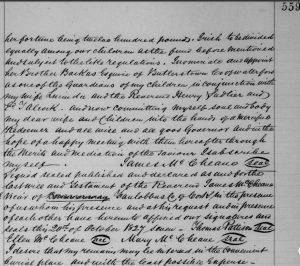 559
her fortune being twelve hundred pounds Irish to be divided
equally among our children as the fund before mentioned
and subject to the like regulations. I nominate and appoint
her Brother Esquire of Butlerstown Co of Waterford
as one of the Guardians of my Children in conjunction with
my wife Lucinda and the Reverend Henry and
Alcock. And now committing myself soul and body
my dear wife and Children into the hands of a merciful
Redeemer and all wise and all good Governor and in the
hope of a happy meeting with them hereafter through
the Merits and Mediation of the Saviour I subscribe
myself James Mc Cheane Seal
Signed sealed published and declared as and for the
last will and Testament of the Reverend James Mc Cheane
Co in the presence
of us who in his presence and at his request and in presence
of each other have hereunto affixed our signatures and
seals this 20th of October 1827 Thomas Seal
Ellen Mc Cheane Seal Mary Mc Cheane Seal
I desire that my remains may be interred in the
burial place and with the least possible expense